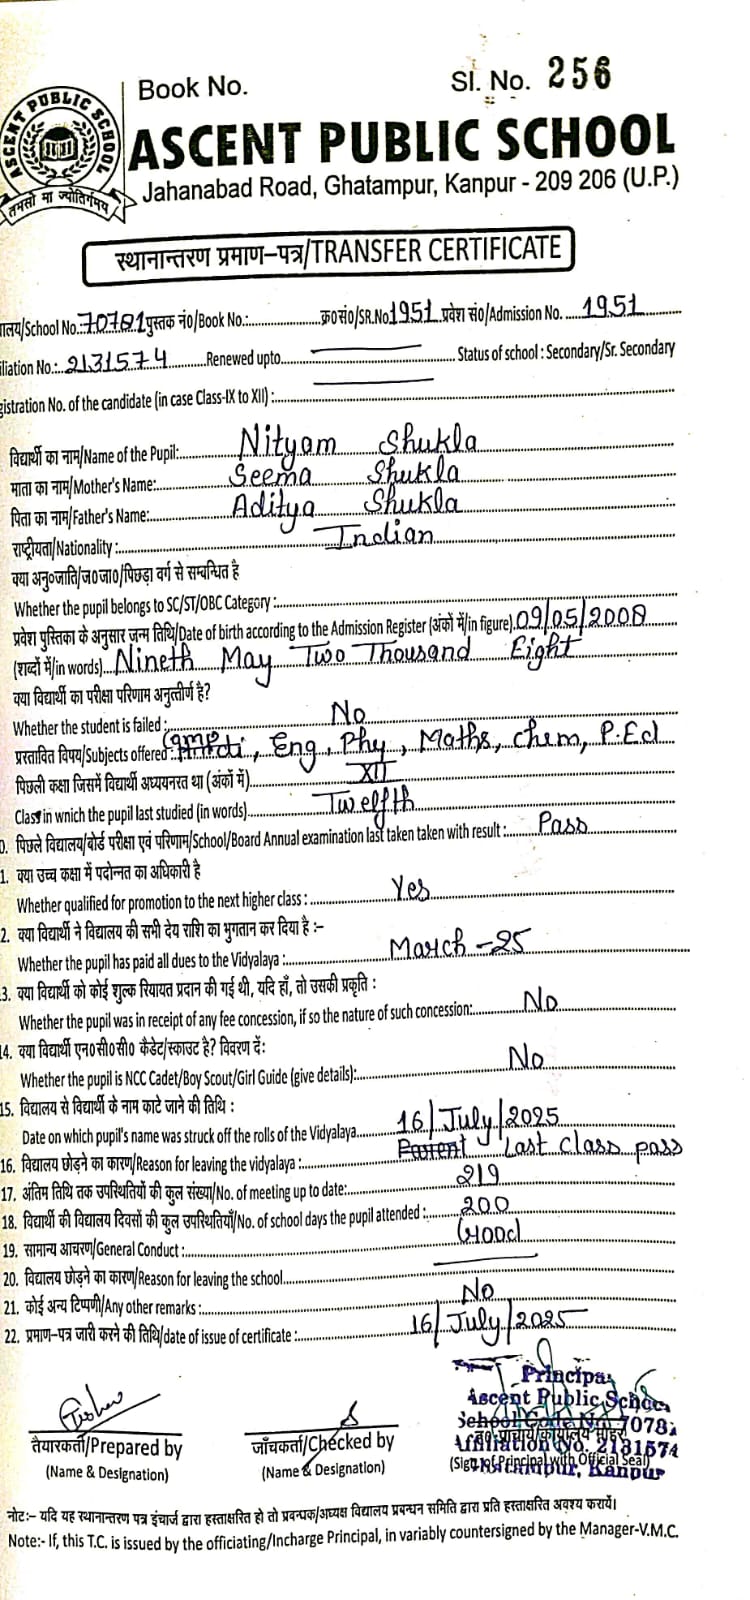 Book No.
Sl. No. 256
ASCENT PUBLIC SCHOOL
तमसो मा ज्योतिर्गमय
ASCENT PUBLIC SCHOOL
Jahanabad Road, Ghatampur, Kanpur - 209 206 (U.P.)
स्थानान्तरण प्रमाण-पत्र/TRANSFER CERTIFICATE
ालय/School No.: 70781 पुस्तक नं0/Book No.: क्र0सं0/SR.No 1951 प्रवेश सं0/Admission No. 1951
iliation No.: 2131574 Renewed upto Status of school : Secondary/Sr. Secondary
gistration No. of the candidate (in case Class-IX to XII) :
विद्यार्थी का नाम/Name of the Pupil: Nityam Shukla
माता का नाम/Mother's Name: Seema Shukla
पिता का नाम/Father's Name: Aditya Shukla
राष्ट्रीयता/Nationality : Indian
क्या अनु0जाति/ज0जा0/पिछड़ा वर्ग से सम्बन्धित है
Whether the pupil belongs to SC/ST/OBC Category :
प्रवेश पुस्तिका के अनुसार जन्म तिथि/Date of birth according to the Admission Register (अंकों में/in figure). 09/05/2008
(शब्दों में/in words) Nineth May Two Thousand Eight
क्या विद्यार्थी का परीक्षा परिणाम अनुत्तीर्ण है?
Whether the student is failed : No
प्रस्तावित विषय/Subjects offered : Eng, Phy, Maths, Chem, P.Ed
पिछली कक्षा जिसमें विद्यार्थी अध्ययनरत था (अंकों में) XII
Class in wnich the pupil last studied (in words) Twelfth
0. पिछले विद्यालय/बोर्ड परीक्षा एवं परिणाम/School/Board Annual examination last taken taken with result : Pass
1. क्या उच्च कक्षा में पदोन्नत का अधिकारी है
Whether qualified for promotion to the next higher class : Yes
2. क्या विद्यार्थी ने विद्यालय की सभी देय राशि का भुगतान कर दिया है :-
Whether the pupil has paid all dues to the Vidyalaya : March-25
3. क्या विद्यार्थी को कोई शुल्क रियायत प्रदान की गई थी, यदि हाँ, तो उसकी प्रकृति :
Whether the pupil was in receipt of any fee concession, if so the nature of such concession: No
14. क्या विद्यार्थी एन0सी0सी0 कैडेट/स्काउट है? विवरण दें:
Whether the pupil is NCC Cadet/Boy Scout/Girl Guide (give details): No
15. विद्यालय से विद्यार्थी के नाम काटे जाने की तिथि :
Date on which pupil's name was struck off the rolls of the Vidyalaya 16/July/2025
16. विद्यालय छोड़ने का कारण/Reason for leaving the vidyalaya : Parent Last class pass
17. अंतिम तिथि तक उपस्थितियों की कुल संख्या/No. of meeting up to date: 219
18. विद्यार्थी की विद्यालय दिवसों की कुल उपस्थितियाँ/No. of school days the pupil attended : 200
19. सामान्य आचरण/General Conduct : Good
20. विद्यालय छोड़ने का कारण/Reason for leaving the school
21. कोई अन्य टिप्पणी/Any other remarks : No
22. प्रमाण-पत्र जारी करने की तिथि/date of issue of certificate : 16/July/2025
Principa
Ascent Public School
School Code No. 7078
Affiliation No. 2131574
Ghatampur, Kanpur
तैयारकर्ता/Prepared by
(Name & Designation)
जाँचकर्ता/Checked by
(Name & Designation)
(Sign of Principal with Official Seal)
नोट:- यदि यह स्थानान्तरण पत्र इंचार्ज द्वारा हस्ताक्षरित हो तो प्रबन्धक/अध्यक्ष विद्यालय प्रबन्धन समिति द्वारा प्रति हस्ताक्षरित अवश्य करायें।
Note:- If, this T.C. is issued by the officiating/Incharge Principal, in variably countersigned by the Manager-V.M.C.